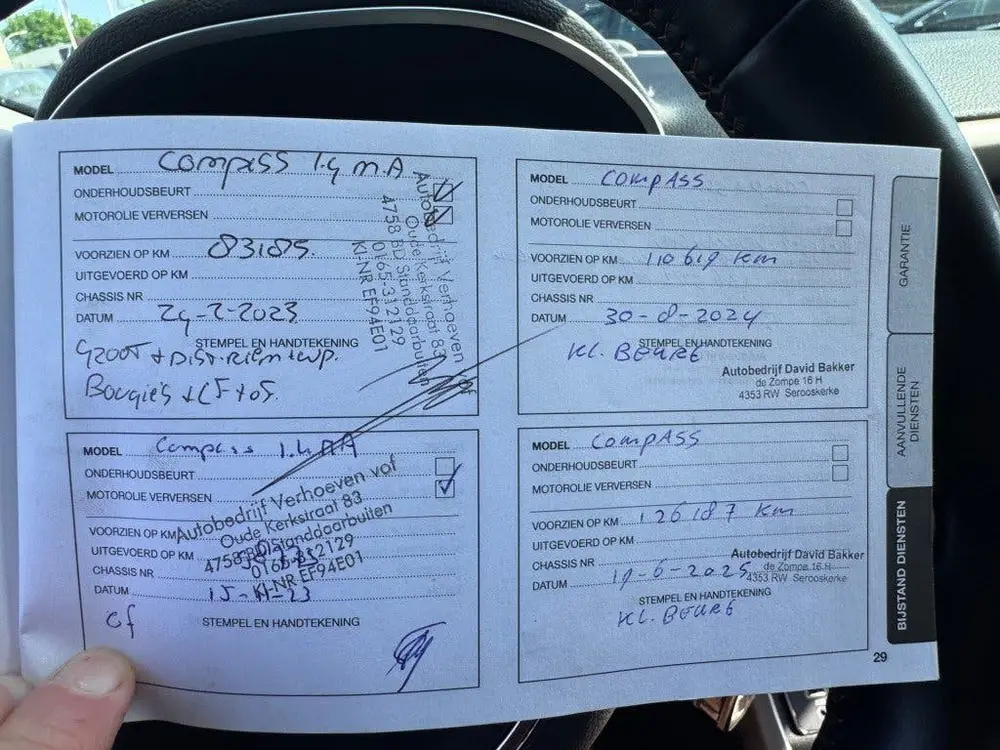 MODEL Compass 1.4 MA
ONDERHOUDSBEURT
MOTOROLIE VERVERSEN
VOORZIEN OP KM 83185.
UITGEVOERD OP KM
CHASSIS NR
DATUM 24-2-2023
STEMPEL EN HANDTEKENING
GROOT + DIST. RIEM + WP.
Bougie's + LF + OF.
Autobedrijf Verhoeven vof
Oude Kerkstraat 83
4758 BD Standdaarbuiten
0165-312129
KI-NR EF94E01
MODEL Compass 1.4 MA
ONDERHOUDSBEURT
MOTOROLIE VERVERSEN
VOORZIEN OP KM
UITGEVOERD OP KM
CHASSIS NR
DATUM 15-11-23
STEMPEL EN HANDTEKENING
of
Autobedrijf Verhoeven vof
Oude Kerkstraat 83
4758 BD Standdaarbuiten
0165-312129
KI-NR EF94E01
MODEL COMPASS
ONDERHOUDSBEURT
MOTOROLIE VERVERSEN
VOORZIEN OP KM 110619 km
UITGEVOERD OP KM
CHASSIS NR
DATUM 30-8-2024
STEMPEL EN HANDTEKENING
KL. BEURT
Autobedrijf David Bakker
de Zompe 16 H
4353 RW Serooskerke
MODEL COMPASS
ONDERHOUDSBEURT
MOTOROLIE VERVERSEN
VOORZIEN OP KM 126187 km
UITGEVOERD OP KM
CHASSIS NR
DATUM 19-6-2025
Autobedrijf David Bakker
de Zompe 16 H
4353 RW Serooskerke
STEMPEL EN HANDTEKENING
KL. BEURT
GARANTIE
AANVULLENDE
DIENSTEN
BIJSTAND DIENSTEN
29